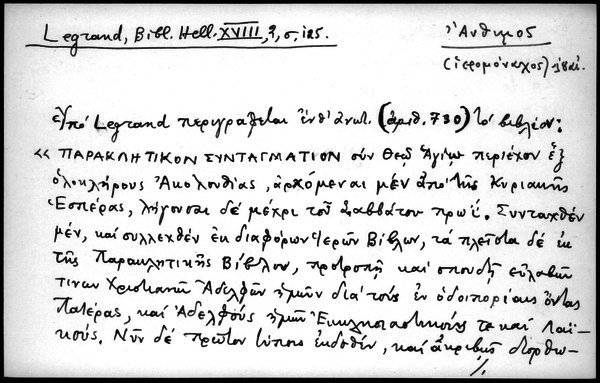 Legrand, Bibl. Hell. XVIII, 2, σ, 125.
Ἄνθιμος
(ἱερομόναχος) 18 αἰ.
Ὑπό Legrand περιγράφεται (ἀριθ. 730) τό βιβλίον:
« ΠΑΡΑΚΛΗΤΙΚΟΝ ΣΥΝΤΑΓΜΑΤΙΟΝ σύν Θεῷ Ἁγίῳ περιέχον ἕξ
ὁλοκλήρους Ἀκολουθίας, ἀρχόμεναι μέν ἀπό τῆς Κυριακῆς
Ἑσπέρας, λήγουσαι δέ μέχρι τοῦ Σαββάτου πρωΐ. Συνταχθέν
μέν, καί συλλεχθέν ἐκ διαφόρων Ἱερῶν Βίβλων, τά πλεῖστα δέ ἐκ
τῆς Παρακλητικῆς Βίβλου, προτροπῇ καί σπουδῇ εὐλαβῶν
τινων Χριστιανῶν Ἀδελφῶν ἡμῶν διά τούς ἐν ὁδοιπορίαις ὄντας
Πατέρας, καί Ἀδελφούς ἡμῶν Ἐκκλησιαστικούς τε καί Λαϊ-
κούς. Νῦν δέ πρῶτον τύποις ἐκδοθέν, καί ἀκριβῶς διορθω-
//.